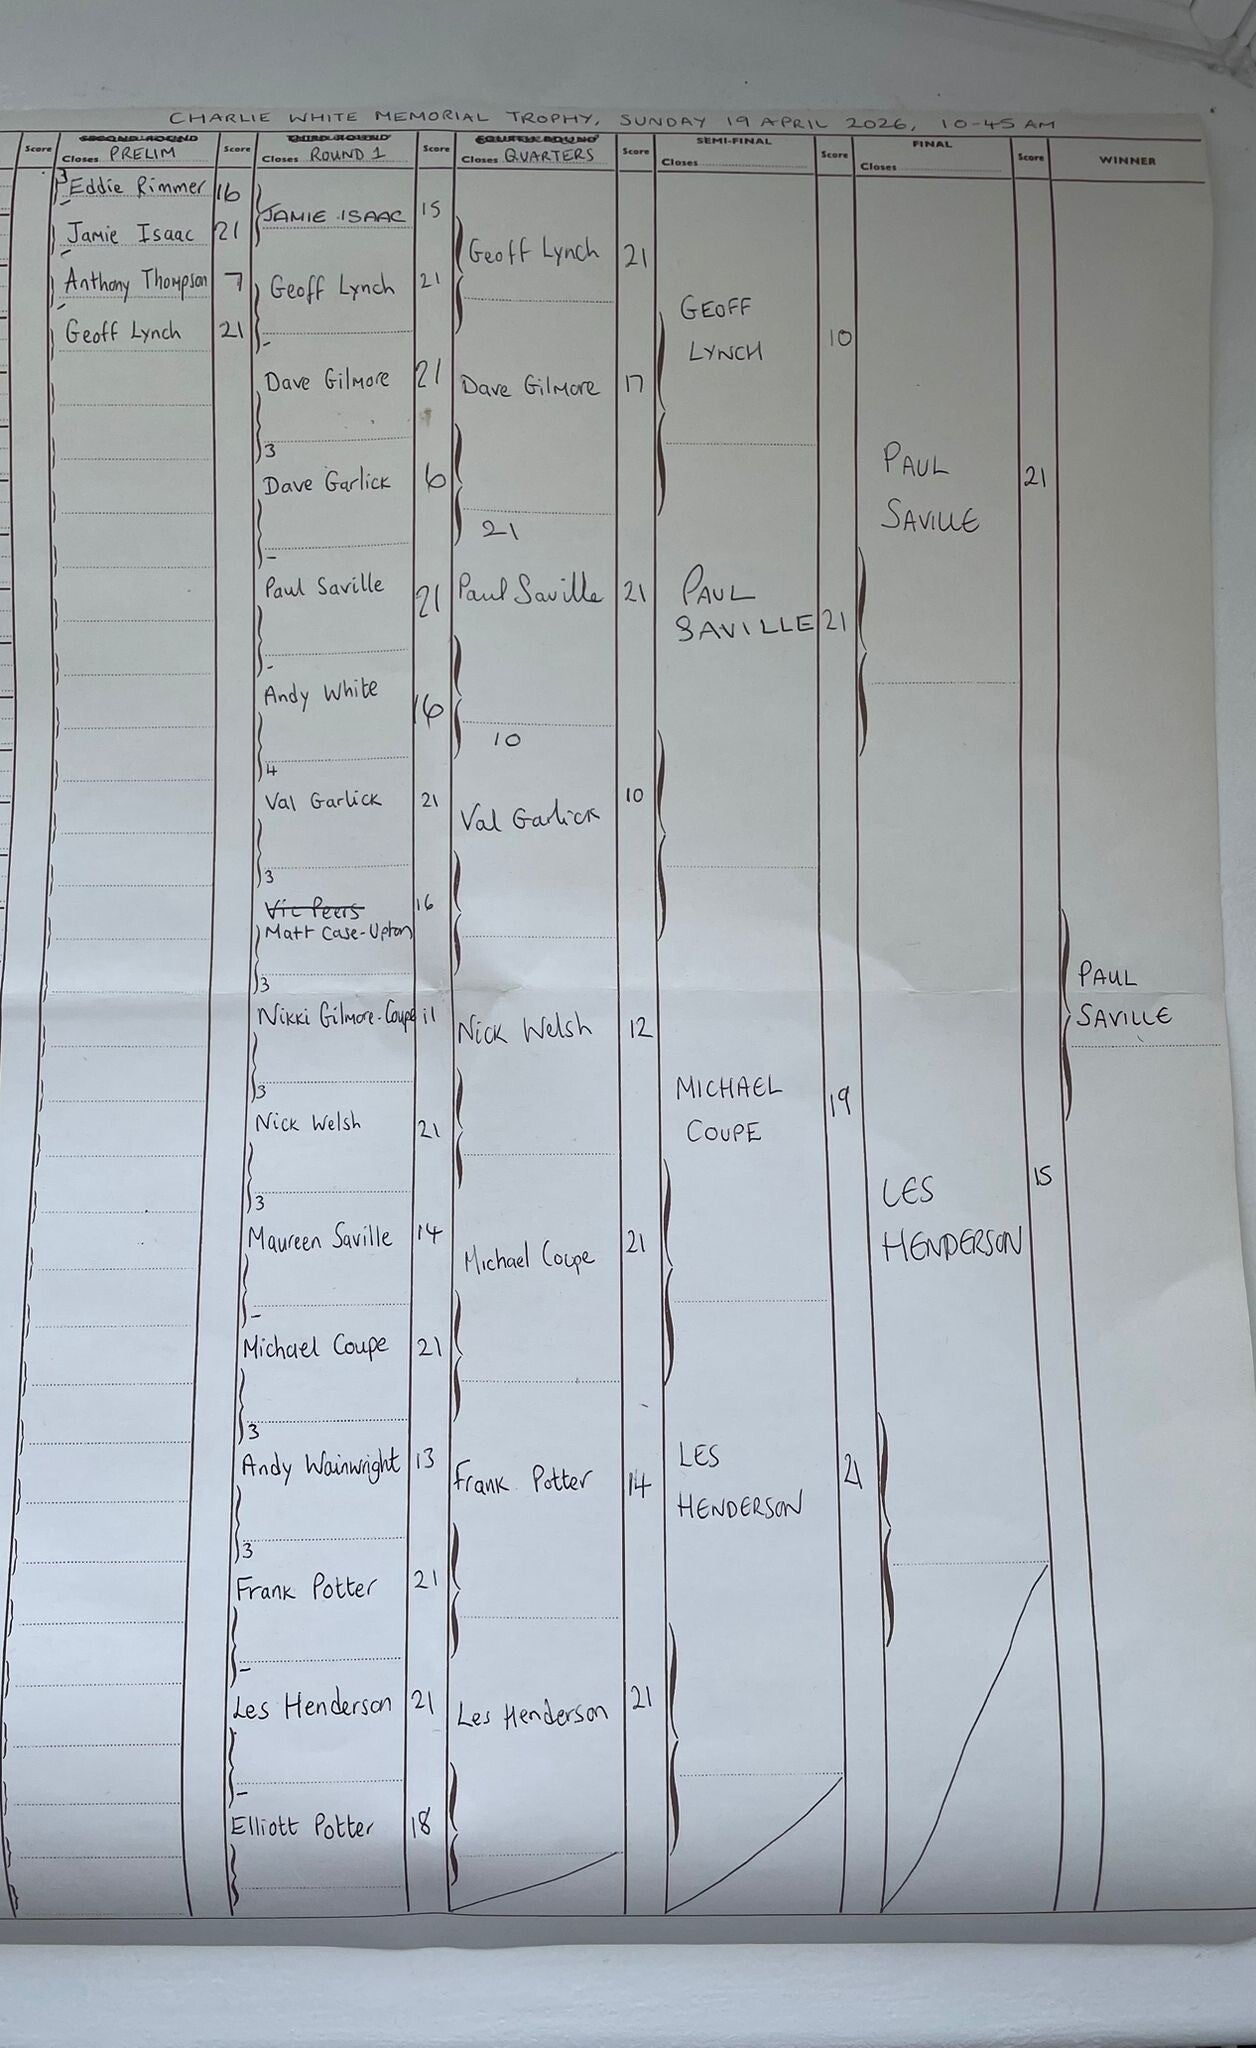 CHARLIE WHITE MEMORIAL TROPHY, SUNDAY 19 APRIL 2026, 10-45 AM
Score
SECOND ROUND
Closes PRELIM
Score
THIRD ROUND
Closes ROUND 1
Score
FOURTH ROUND
Closes QUARTERS
Score
SEMI-FINAL
Closes
Score
FINAL
Closes
Score
WINNER
3
Eddie Rimmer 16
Jamie Isaac 21
Anthony Thompson 7
Geoff Lynch 21
JAMIE ISAAC 15
Geoff Lynch 21
Dave Gilmore 21
3
Dave Garlick 6
Paul Saville 21
Andy White 16
4
Val Garlick 21
3
Vic Peers 16
Matt Case-Upton
3
Nikki Gilmore-Coupe 11
3
Nick Welsh 21
3
Maureen Saville 14
Michael Coupe 21
3
Andy Wainwright 13
3
Frank Potter 21
Les Henderson 21
Elliott Potter 18
Geoff Lynch 21
Dave Gilmore 17
21
Paul Saville 21
10
Val Garlick 10
Nick Welsh 12
Michael Coupe 21
Frank Potter 14
Les Henderson 21
GEOFF
LYNCH 10
PAUL
SAVILLE 21
MICHAEL
COUPE 19
LES
HENDERSON 21
PAUL
SAVILLE 21
LES
HENDERSON 15
PAUL
SAVILLE